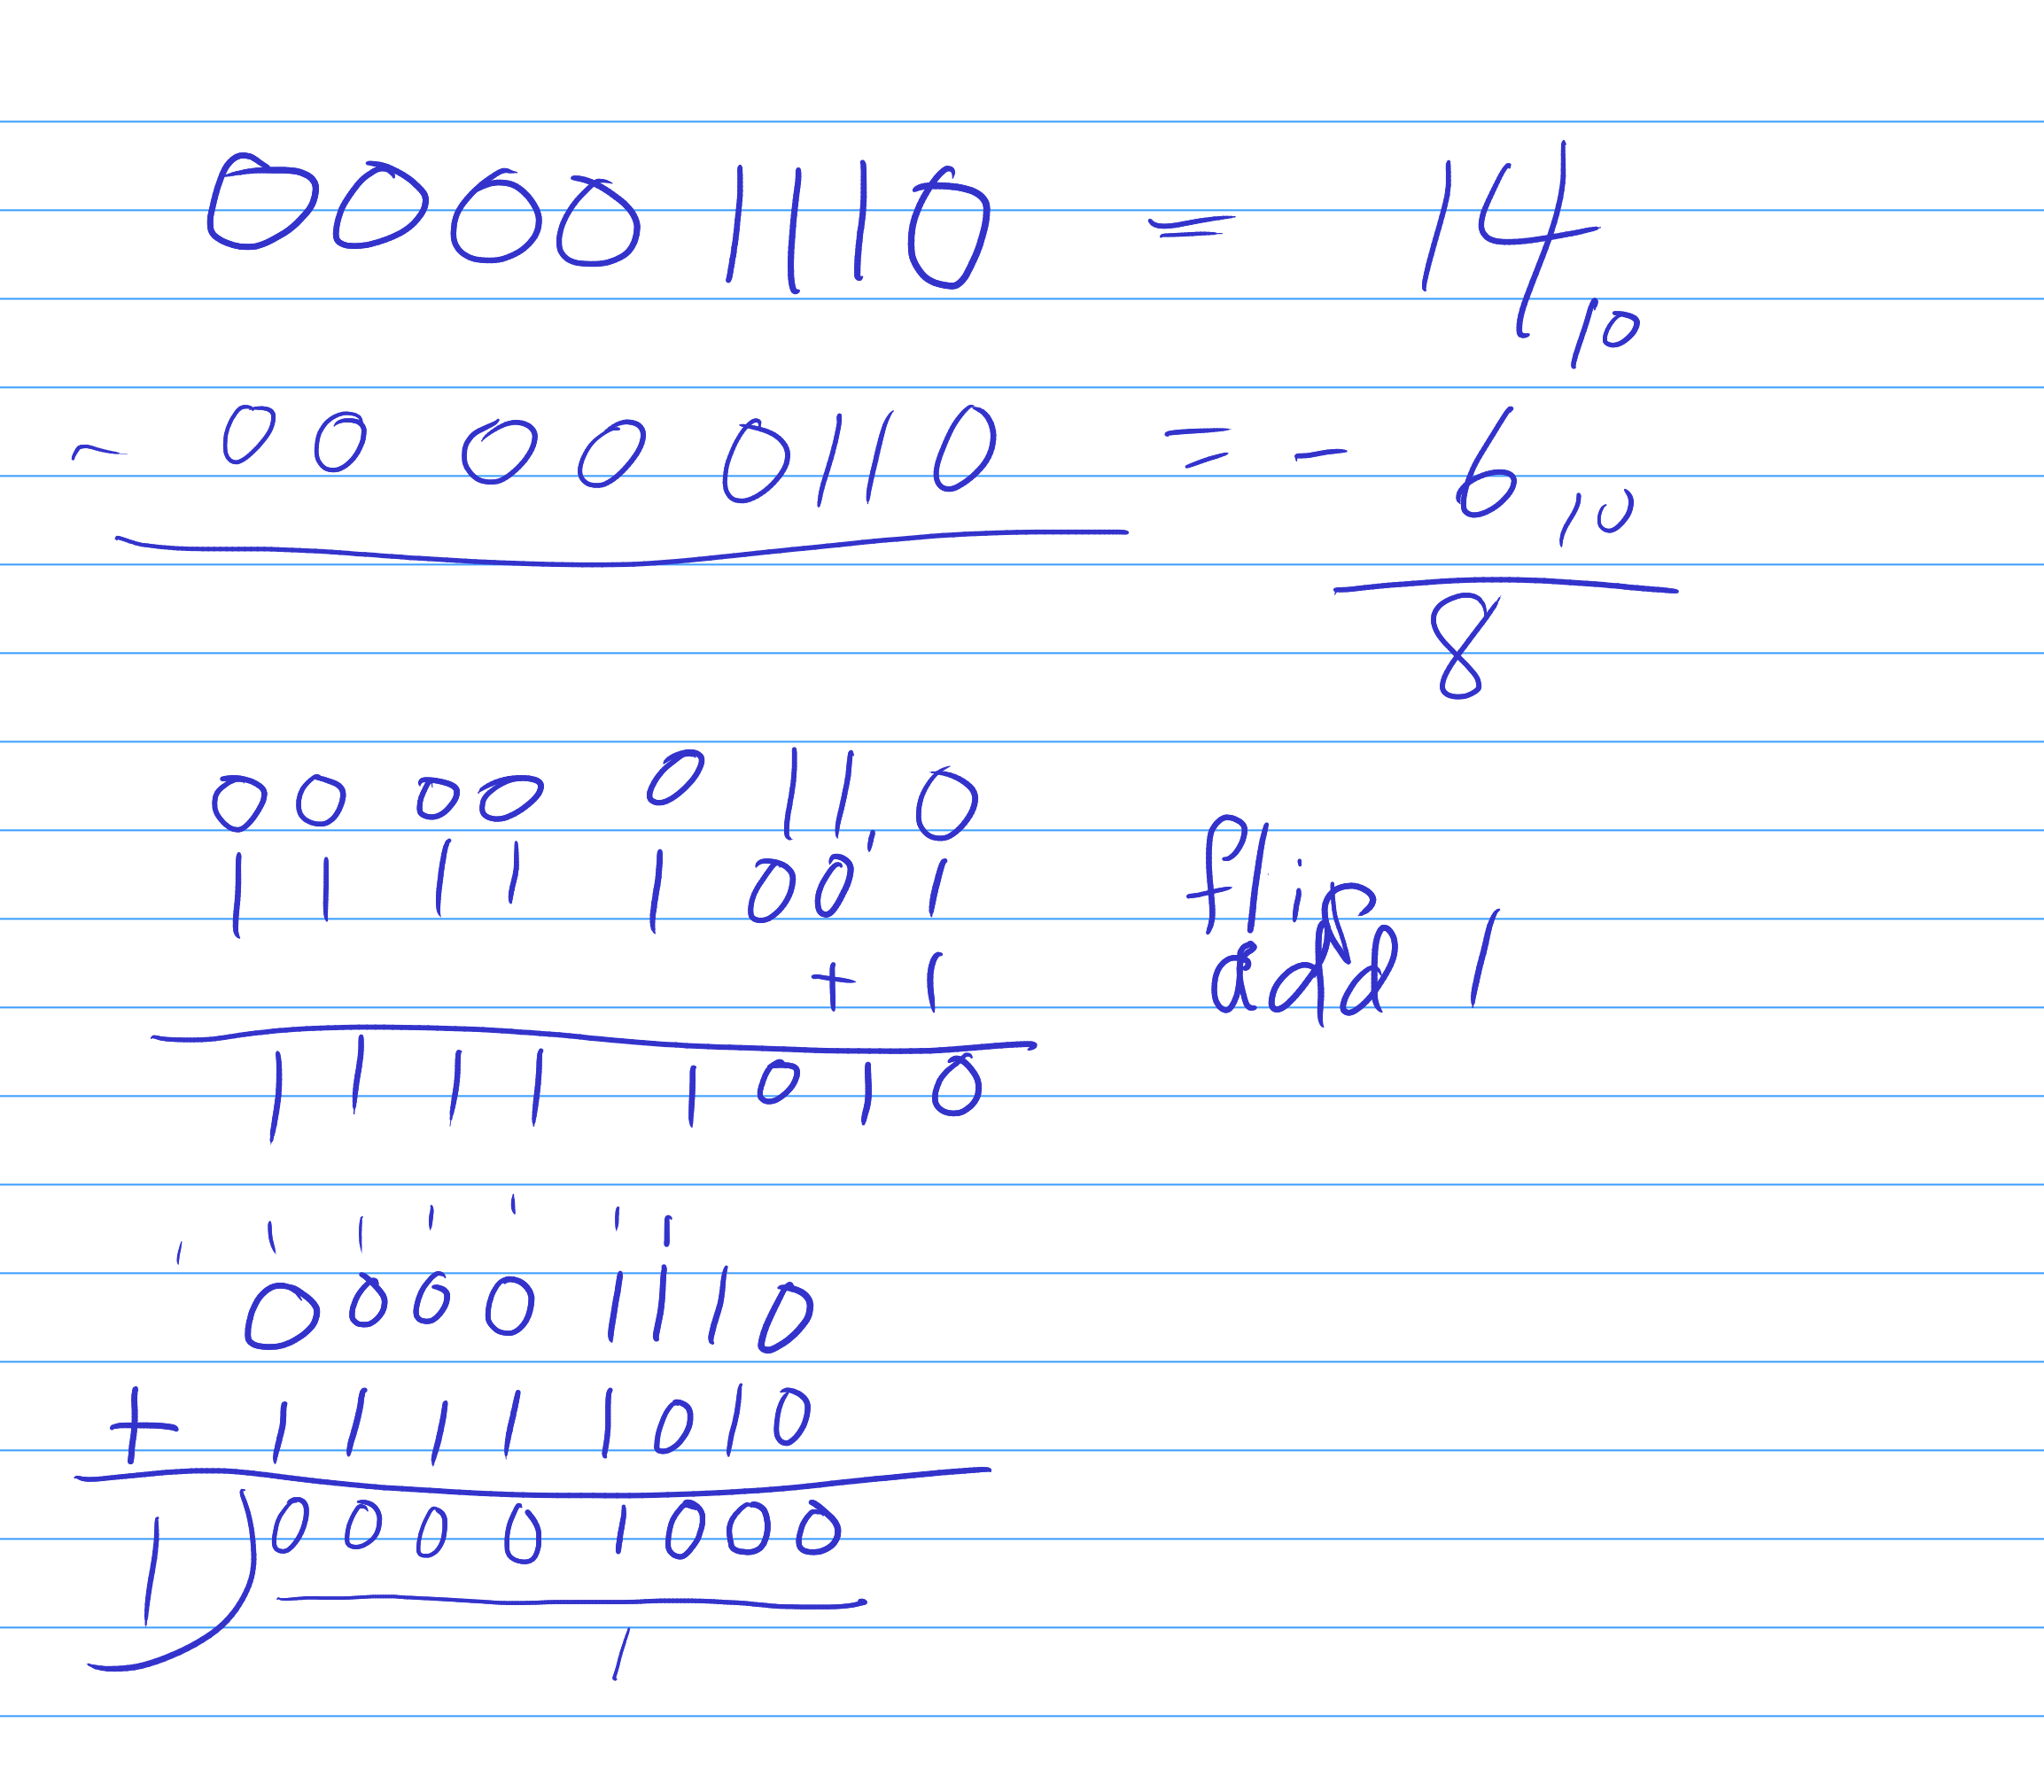 00001110 = 14₁₀
- 00000110 = - 6₁₀
8
0000 0110
1111 1001 flip
+ 1 add 1
1111 1010
1 1 1 1 1 1 1
00001110
+ 11111010
1)00001000
1